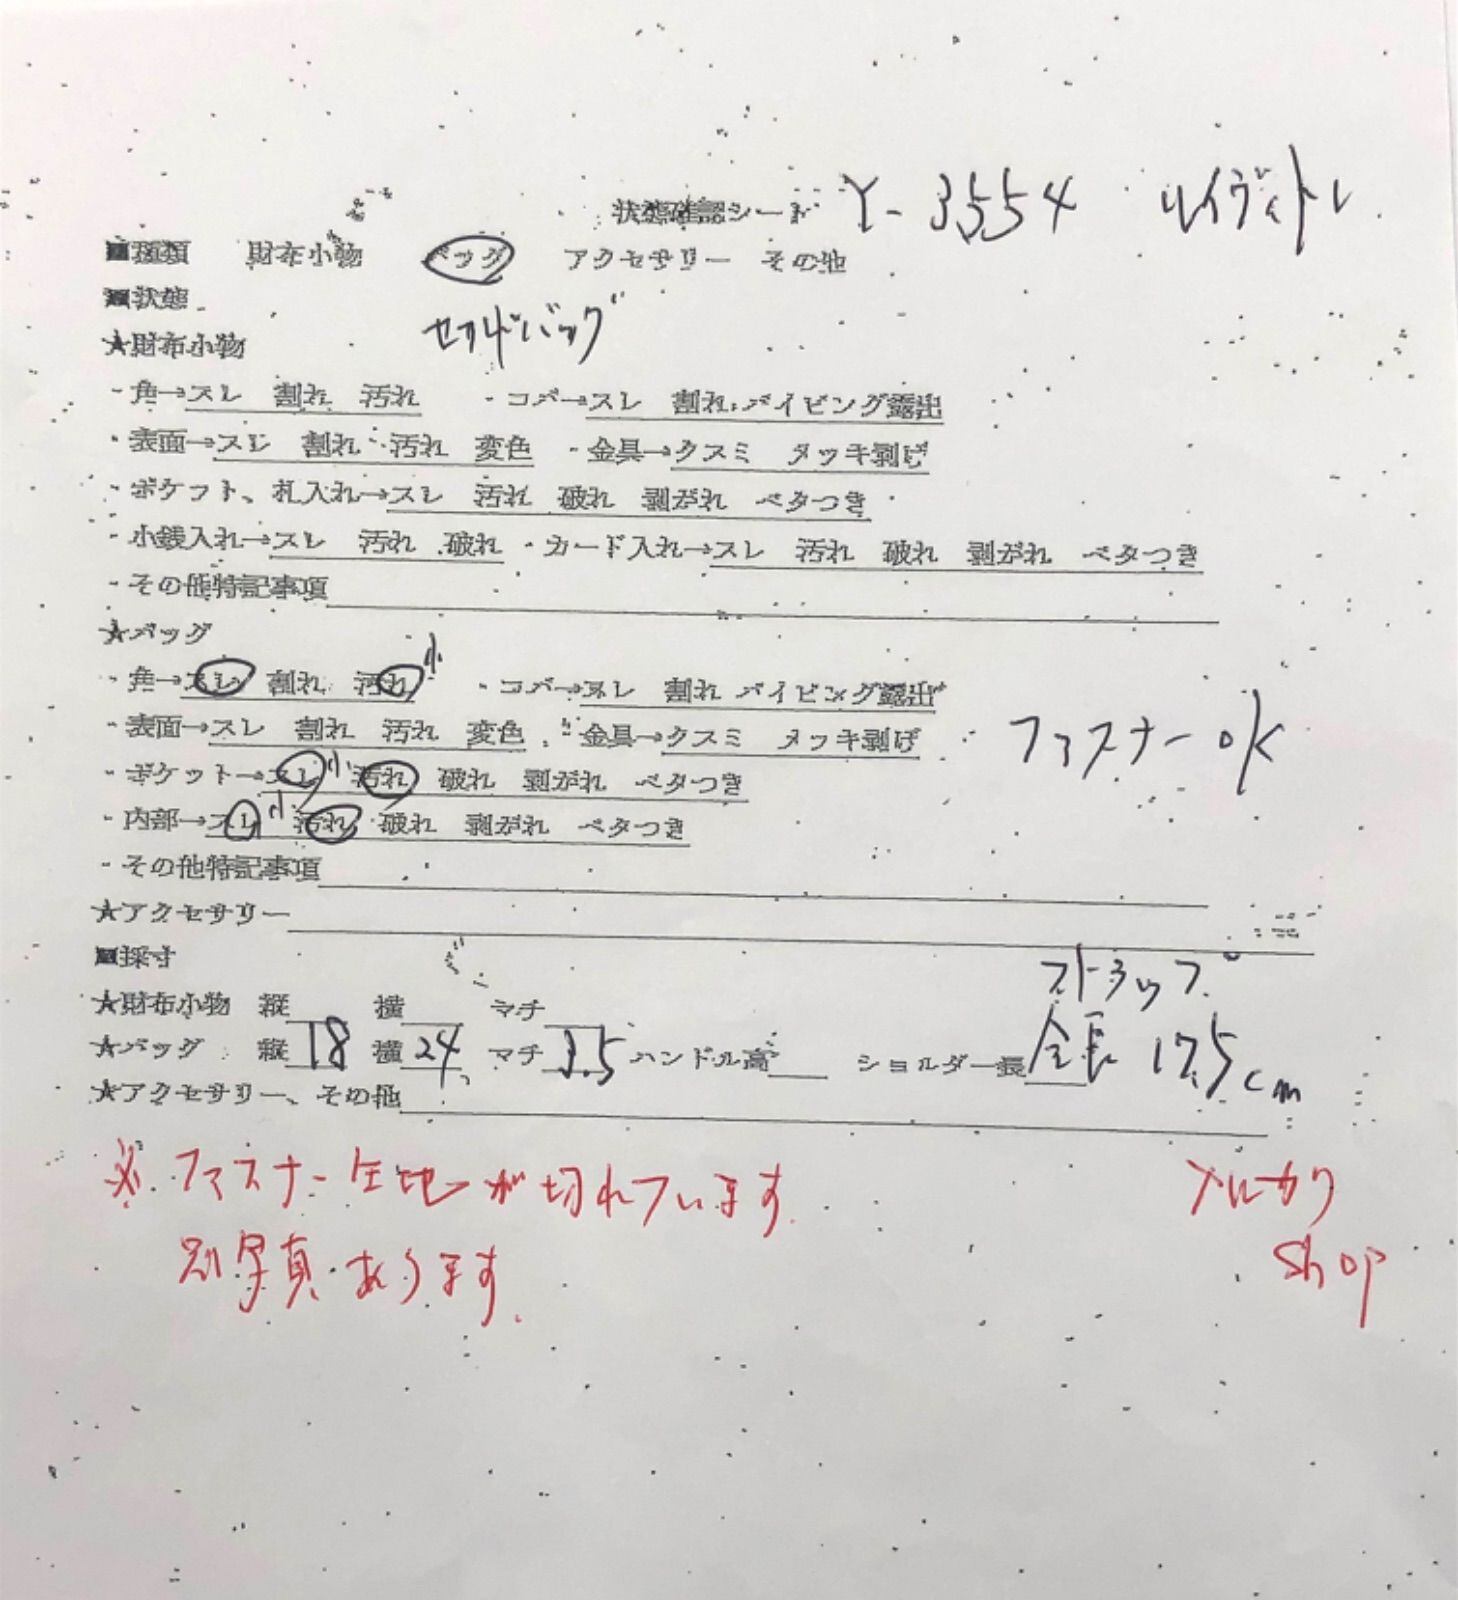 状態確認シート Y-3554 ルイヴィトン
■種類 財布小物 バッグ アクセサリー その他
■状態
セカンドバッグ
★財布小物
・角→スレ 割れ 汚れ ・コバ→スレ 割れ パイピング露出
・表面→スレ 割れ 汚れ 変色 ・金具→クスミ メッキ剥げ
・ポケット、札入れ→スレ 汚れ 破れ 剥がれ ベタつき
・小銭入れ→スレ 汚れ 破れ ・カード入れ→スレ 汚れ 破れ 剥がれ ベタつき
・その他特記事項
★バッグ
・角→スレ 割れ 汚れ 小 ・コバ→スレ 割れ パイピング露出
・表面→スレ 割れ 汚れ 変色 ・金具→クスミ メッキ剥げ ファスナーOK
・ポケット→スレ 小 汚れ 破れ 剥がれ ベタつき
・内部→スレ 小 汚れ 破れ 剥がれ ベタつき
・その他特記事項
★アクセサリー
■採寸
ストラップ
★財布小物 縦 横 マチ
★バッグ 縦 18 横 24 マチ 3.5 ハンドル高 ショルダー長 全長 17.5cm
★アクセサリー、その他
※ ファスナー生地が切れています
別写真あります
メルカリ
Shop